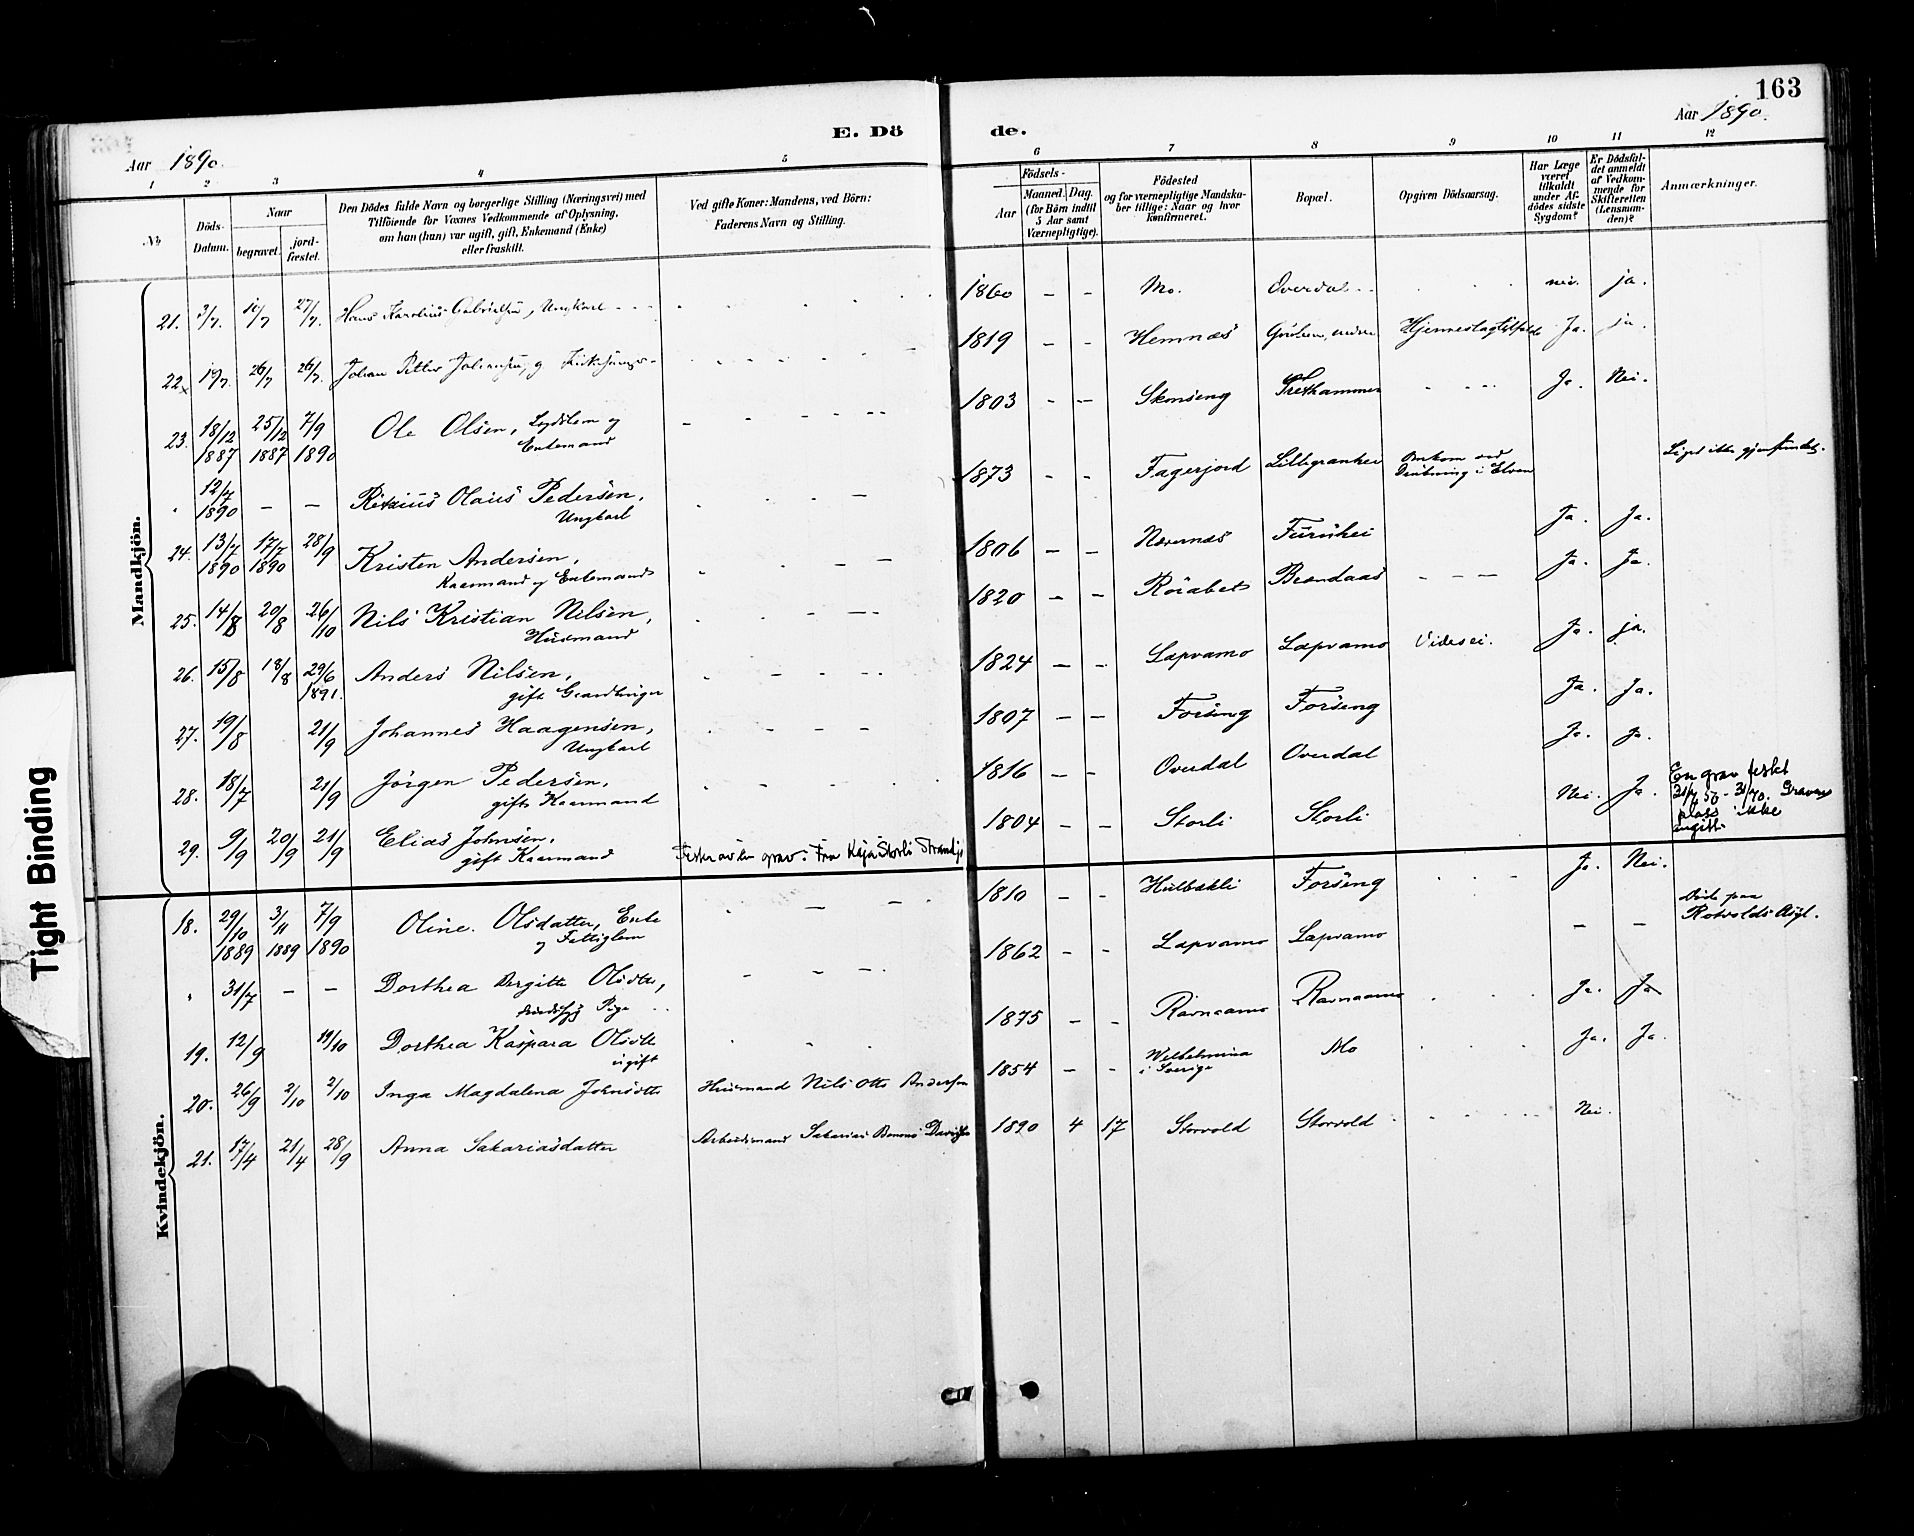 163
E. Dö de.
Aar 1890.
Aar 1890.
1 2 3 4 5 6 7 8 9 10 11 12
No
Döds-Datum.
Naar
begravet.
jord-fæstet.
Den Dödes fulde Navn og borgerlige Stilling (Næringsvei) med
Tilföiende for Voxnes Vedkommende af Oplysning,
om han (hun) var ugift, gift, Enkemand (Enke)
eller fraskilt.
Ved gifte Koner: Mandens, ved Börn:
Faderens Navn og Stilling.
Födsels-
Aar
Maaned. Dag.
(for Börn indtil
5 Aar samt
Værnepligtige).
Födested
og for værnepligtige Mandska-
ber tillige: Naar og hvor
konfirmeret.
Bopæl.
Opgiven Dödsaarsag.
Har Læge
været
tilkaldt
under Af-
dödes sidste
Sygdom?
Er Dödsfal-
det anmeldt
af Vedkom-
mende for
Skifteretten
(Lensman-
den)?
Anmærkninger.
Mandkjön.
21. 3/7. 11/7 27/7. Hans Karolius Gabrielsen, Ungkarl 1860 – – Mo. Overdal nei. ja.
22 19/7. 26/7 26/7. Johan Petter Johansen, g. 1819 – – Hemnæs Hjerneslagtilfælde Ja. ja.
23. 18/12 1887 25/12 1887 7/9 1890 Ole Olsen, Lægdslem og
Enkemand 1803 – – Skonseng Ja. Nei.
" 12/7 1890 – – Olaus Pedersen,
Ungkarl 1873 – – Fagerjord Lillegranhei Omkom ved
Drukning i Elven Liget ikke gjenfundet.
24. 13/7 1890 17/7 1890 28/9 Kristen Andersen,
Kaarmand og Enkemand 1806 – – Nævernæs Furuhei Ja. Ja.
25. 14/8 20/8 26/10 Nils Kristian Nilsen,
Husmand 1820 – – Röiabet Brændaas – – – Ja. Ja.
26. 15/8 18/8 29/6 1891. Anders Nilsen,
gift Gaardbruger 1824 – – Lapvamo Lapvamo Videsei. Ja. ja.
27. 19/8 21/9 Johannes Haagensen,
Ungkarl 1807 – – Forseng Forseng Ja. Ja.
28. 18/7 21/9 Jörgen Pedersen,
gift Kaarmand 1816 – – Overdal Overdal Ja. Ja.
29. 9/9 20/9 21/9 Elias Johnsen,
gift Kaarmand Fester av en grav: Fru Kaja Storli Strandjo 1804 – – Storli Storli Nei. Ja.
En grav festet
31/7 50 - 31/7 70. Gravens
plass ikke
angitt.
Kvindekjön.
18. 29/10 1889 3/11 1889 7/9 1890 Oline Olsdatter, Enke
og Fattiglem 1810 – – Hulbækli Forseng Ja. Nei.
" 31/7 – – Dorthea Bergitte Olsdtr,
sindssyg Pige 1862 – – Lapvamo Lapvamo – – Döde paa
Rotvolds Asyl.
19. 12/9 19/10 Dorthea Kaspara Olsdtr
ugift 1875 – – Ravnaamo Ravnaamo Ja. Ja
20. 26/9 2/10 2/10 Inga Magdalena Johnsdtr Husmand Nils Otto Andersen 1854 – – Wilhelmina
i Sverige Mo Ja. Ja.
21. 17/4 21/4 28/9 Anna Sakariasdatter Arbeidsmand Sakarias Benoni 1890 4 17 Storvold Storvold Nei.
Tight Binding